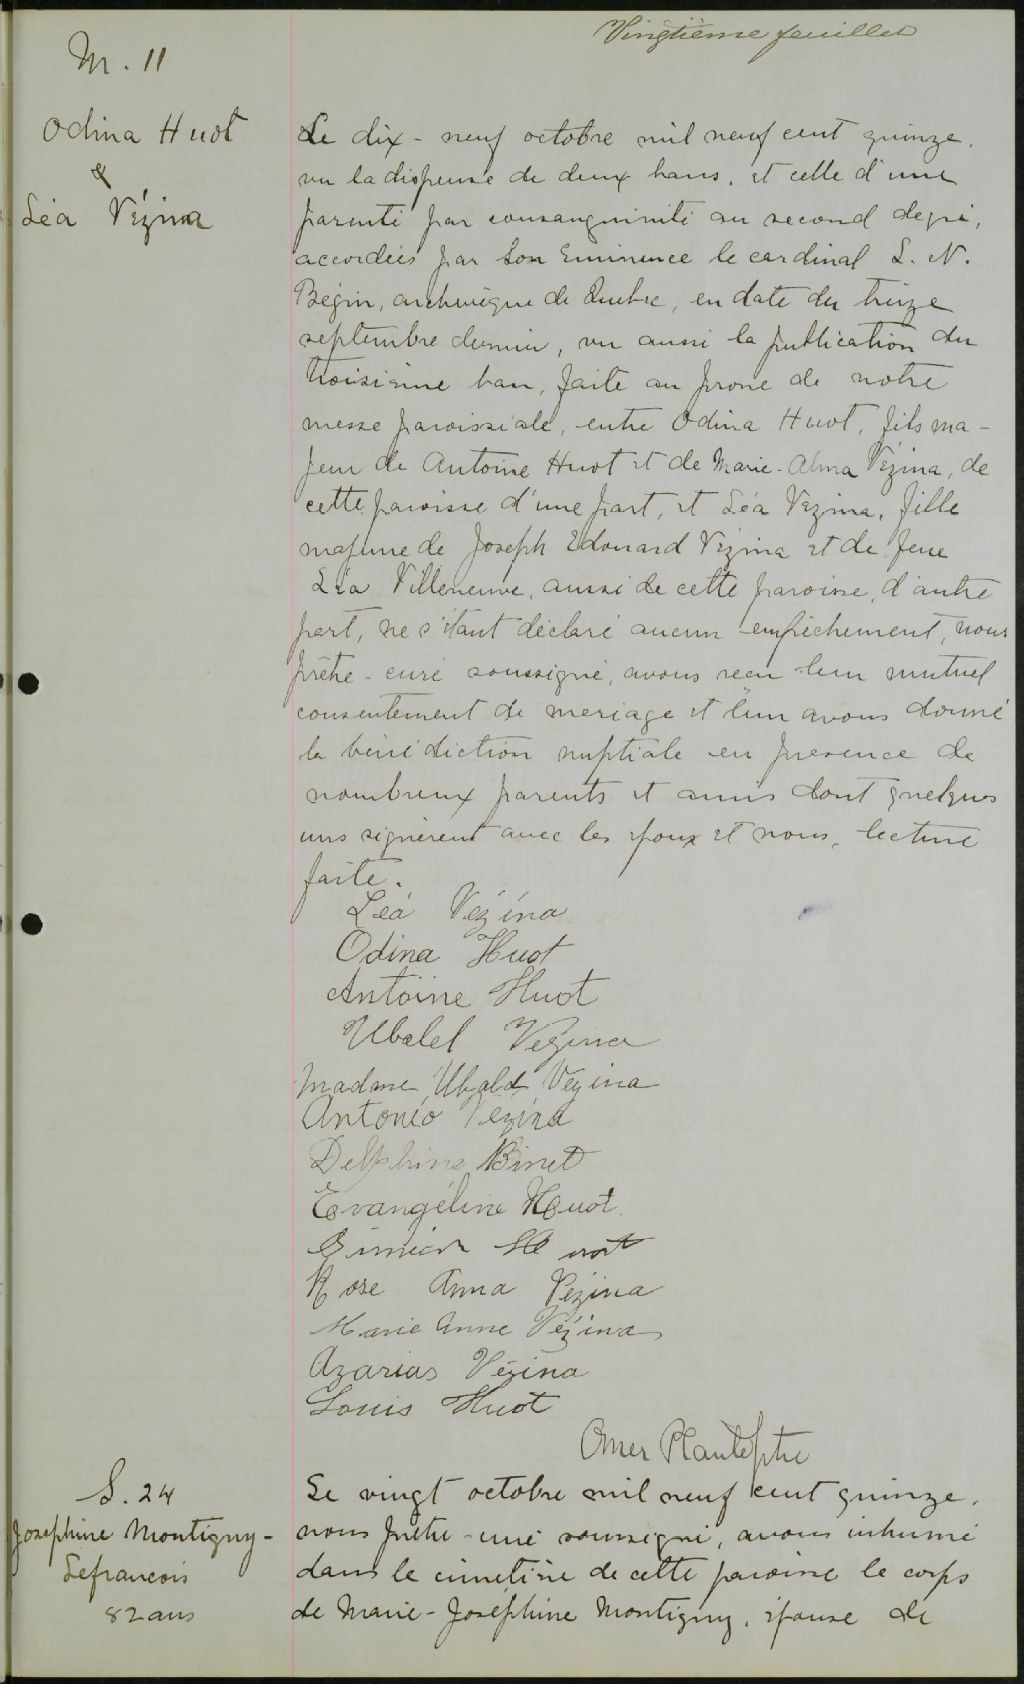 Vingtième feuillet
M. 11
Odina Huot
&
Léa Vézina
Le dix-neuf octobre mil neuf cent quinze,
vu la dispense de deux bans, et celle d'une
parenté par consanguinité au second degré,
accordées par Son Eminence le cardinal L. N.
Bégin, archevêque de Québec, en date du treize
septembre dernier, vu aussi la publication du
troisième ban, faite au prone de notre
messe paroissiale, entre Odina Huot, fils ma-
jeur de Antoine Huot et de Marie-Alma Vézina, de
cette paroisse d'une part, et Léa Vézina, fille
majeure de Joseph Edouard Vézina et de feue
Léa Villeneuve, aussi de cette paroisse, d'autre
part, ne s'étant déclaré aucun empêchement, nous
prêtre-curé soussigné, avons reçu leur mutuel
consentement de mariage et leur avons donné
la bénédiction nuptiale en presence de
nombreux parents et amis dont quelques
uns signèrent avec les époux et nous, lecture
faite.
Léa Vézina
Odina Huot
Antoine Huot
Ubald Vézina
Madme Ubald Vézina
Antonio Vézina
Delphine Binet
Evangéline Huot.
Huot
Rose Anna Vézina
Marie Anne Vézina
Azarias Vézina
Louis Huot
Omer Plante ptre
S. 24
Josephine Montigny-
Lefrancois
82 ans
Le vingt octobre mil neuf cent quinze,
nous prêtre-curé soussigné, avons inhumé
dans le cimetière de cette paroisse le corps
de Marie-Joséphine Montigny, épouse de